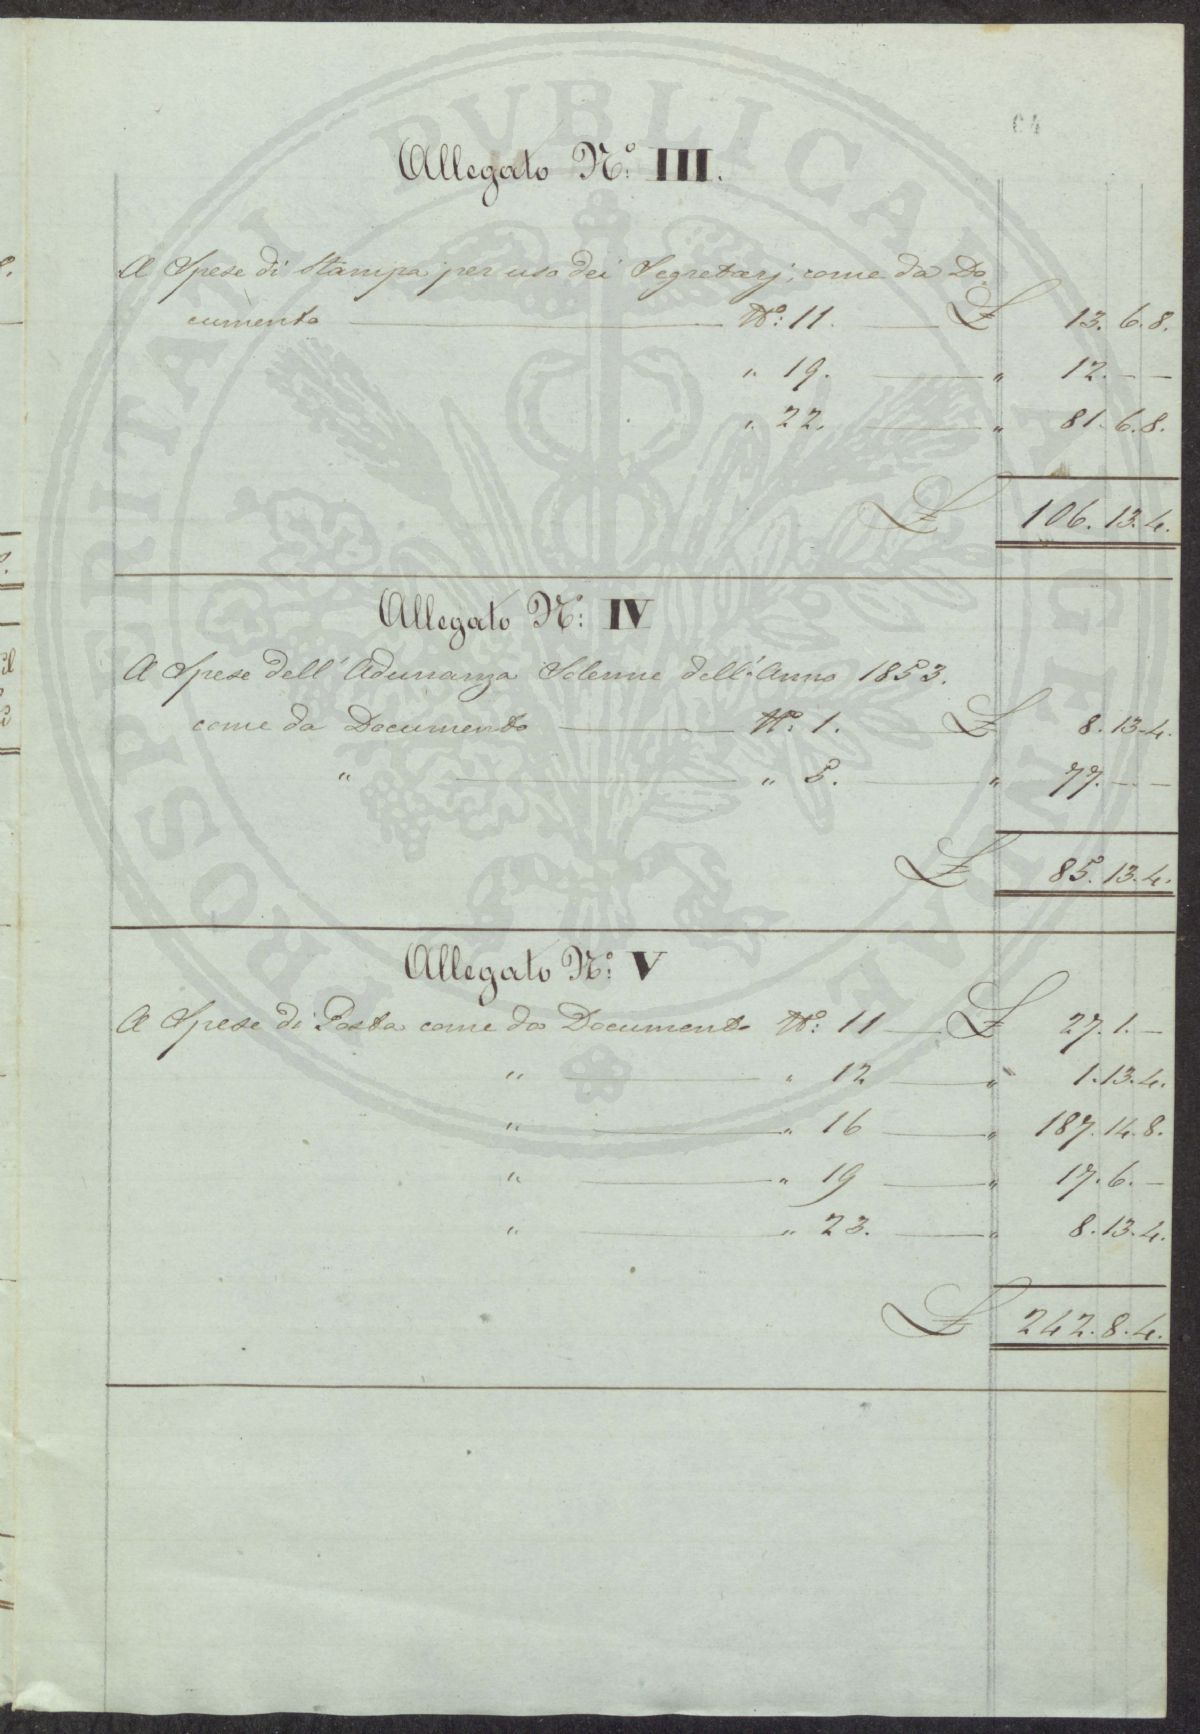 64
Allegato Nº: III.
A Spese di Stampa per uso dei Segretarj, come da Do
cumento Nº: 11. £ 13. 6. 8.
" 19. " 12. — —
" 22. " 81. 6. 8.
£ 106. 13. 4.
Allegato Nº: IV
A Spese dell'Adunanza Solenne dell'Anno 1853.
come da Documento Nº: 1. £ 8. 13. 4.
" " 5. " 77. — —
£ 85. 13. 4.
Allegato Nº: V
A Spese di Posta come da Documento Nº: 11 £ 27. 1. —
" " 12 " 1. 13. 4.
" " 16 " 187. 14. 8.
" " 19 " 17. 6. —
" " 23. " 8. 13. 4.
£ 242. 8. 4.
PROSPERITATI PVBLICAE AVGENDAE